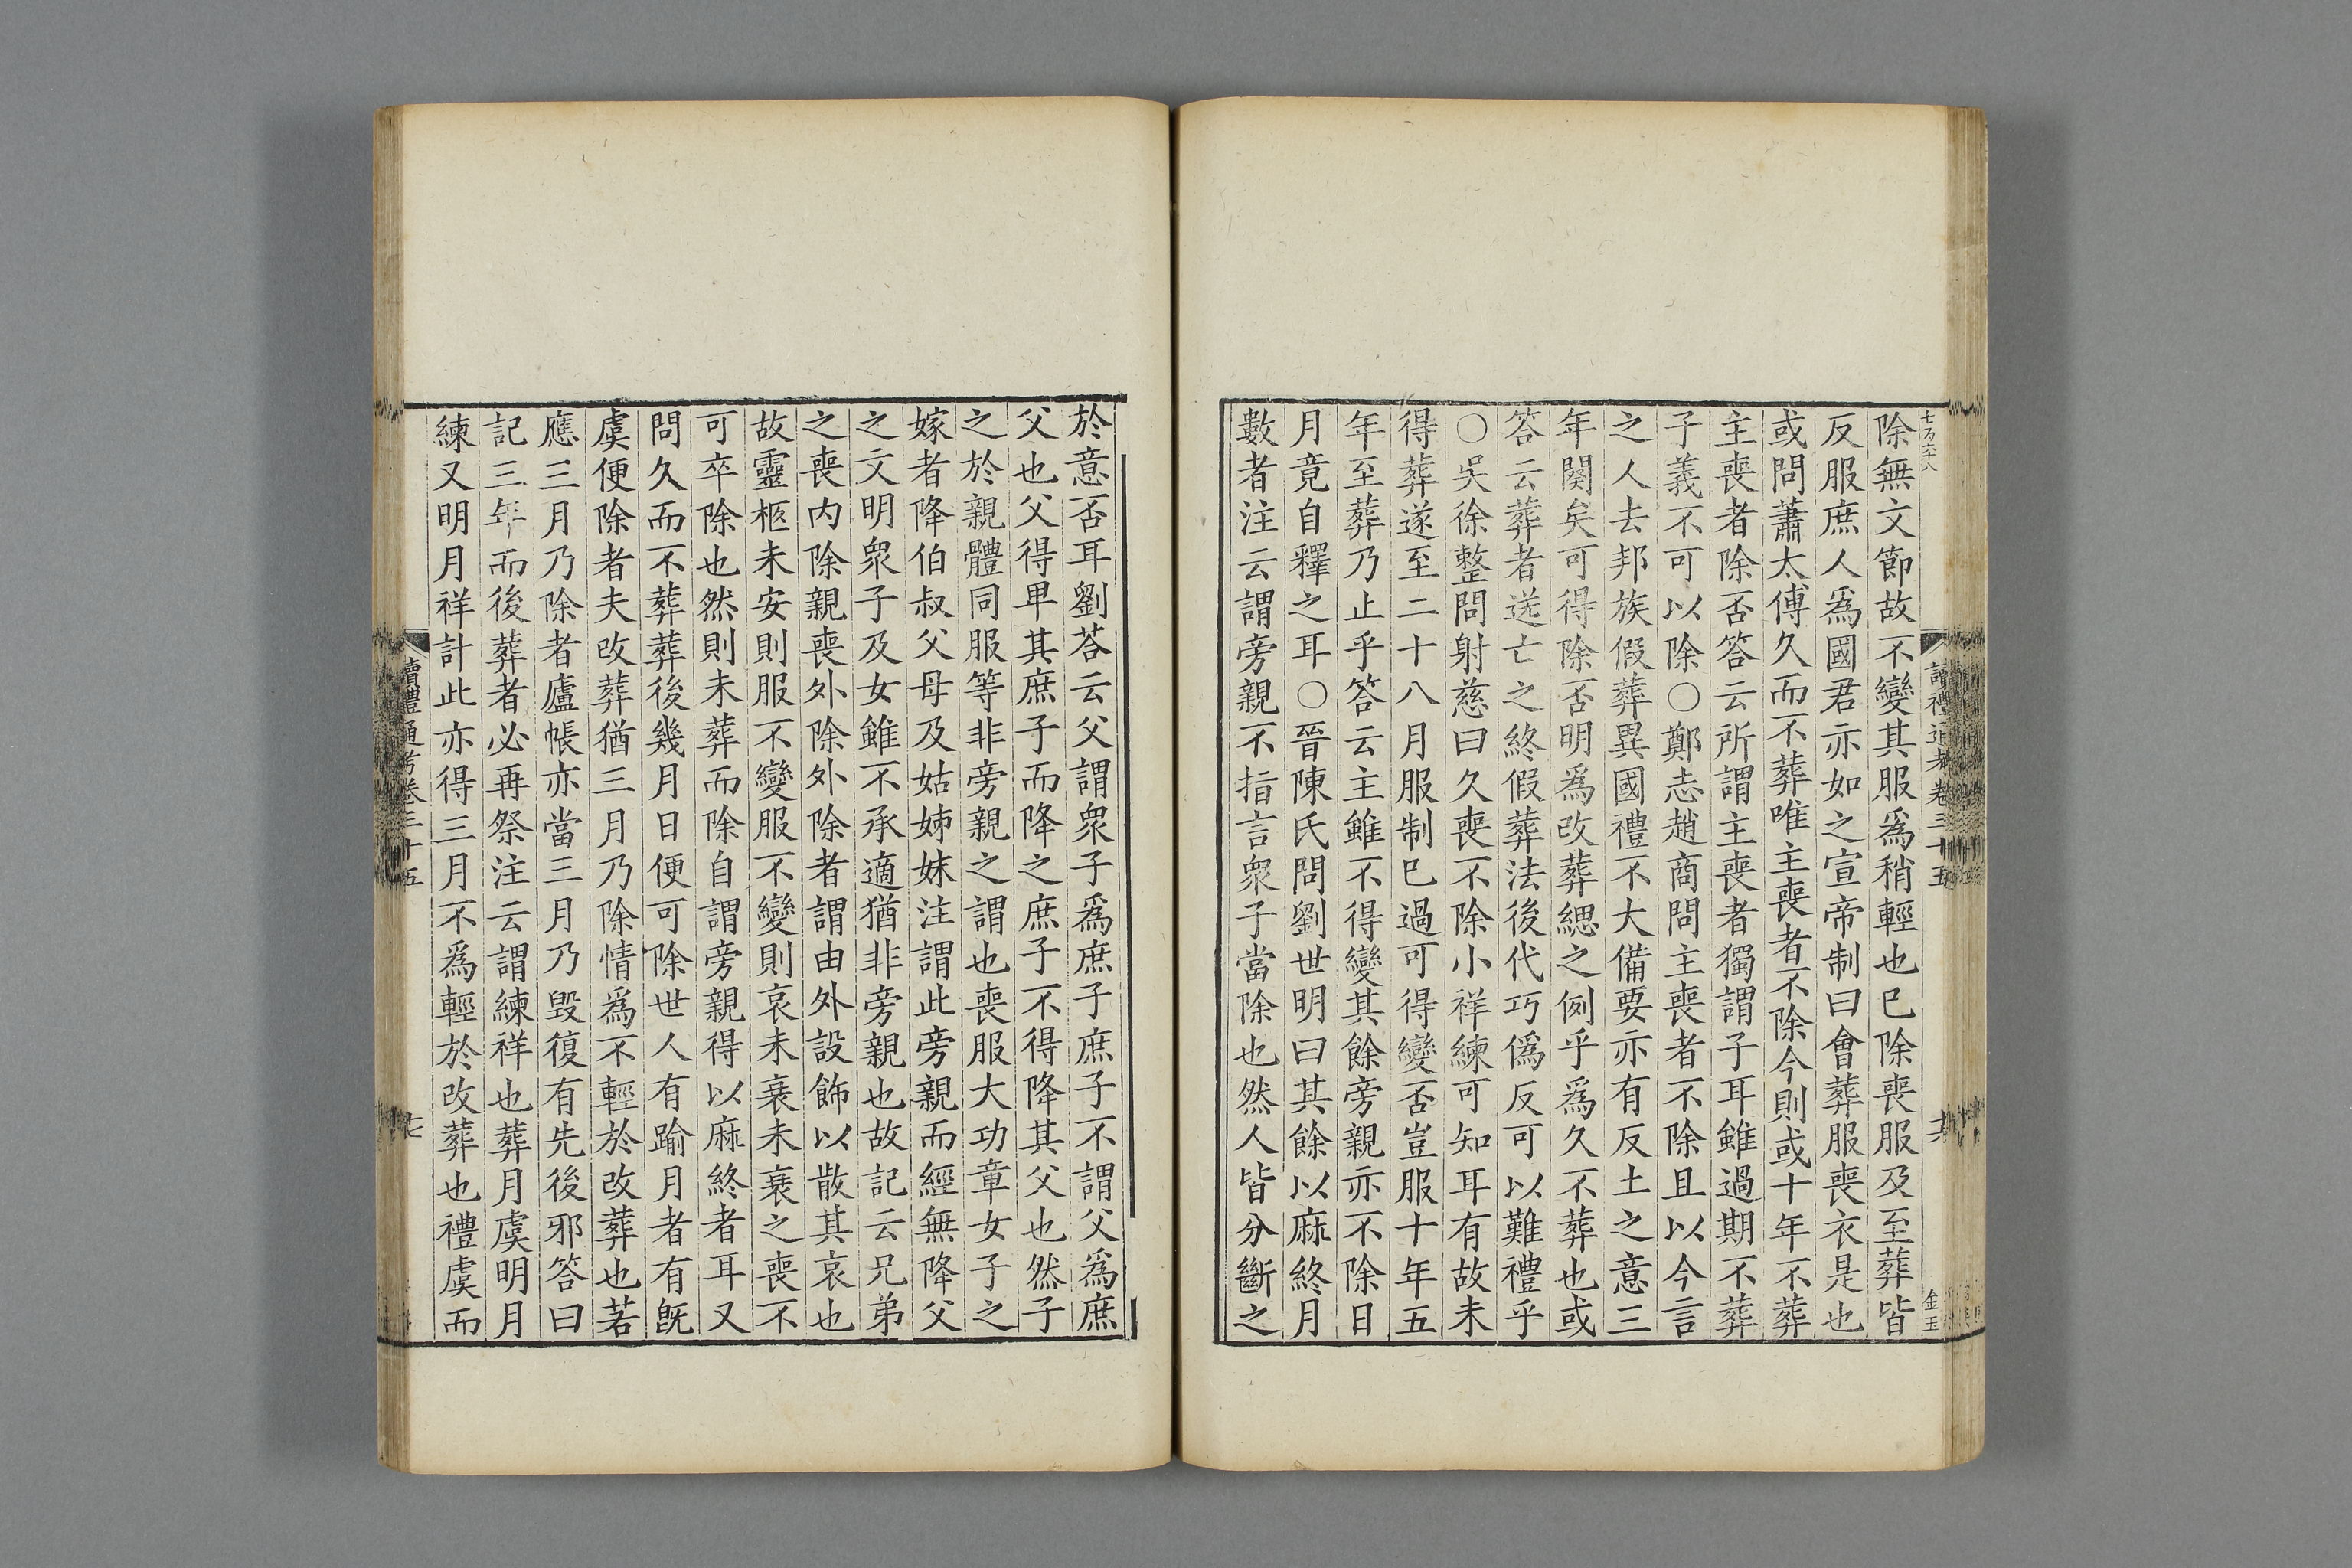 七百六十八
讀禮通考卷三十五
十六
金玉
除無文節故不變其服爲稍輕也已除喪服及至葬皆
反服庶人爲國君亦如之宣帝制曰會葬服喪衣是也
或問蕭太傅久而不葬唯主喪者不除今則或十年不葬
主喪者除否答云所謂主喪者獨謂子耳雖過期不葬
子義不可以除○鄭志趙商問主喪者不除且以今言
之人去邦族假葬異國禮不大備要亦有反土之意三
年闋矣可得除否明爲改葬緦之例乎爲久不葬也或
答云葬者送亡之終假葬法後代巧僞反可以難禮乎
○吳徐整問射慈曰久喪不除小祥練可知耳有故未
得葬遂至二十八月服制已過可得變否豈服十年五
年至葬乃止乎答云主雖不得變其餘旁親亦不除日
月竟自釋之耳○晉陳氏問劉世明曰其餘以麻終月
數者注云謂旁親不指言眾子當除也然人皆分斷之
於意否耳劉荅云父謂眾子爲庶子庶子不謂父爲庶
父也父得卑其庶子而降之庶子不得降其父也然子
之於親體同服等非旁親之謂也喪服大功章女子之
嫁者降伯叔父母及姑姊妹注謂此旁親而經無降父
之文明眾子及女雖不承適猶非旁親也故記云兄弟
之喪内除親喪外除外除者謂由外設飾以散其哀也
故靈柩未安則服不變服不變則哀未衰未衰之喪不
可卒除也然則未葬而除自謂旁親得以麻終者耳又
問久而不葬葬後幾月日便可除世人有踰月者有旣
虞便除者夫改葬猶三月乃除情爲不輕於改葬也若
應三月乃除者廬帳亦當三月乃毀復有先後邪答曰
記三年而後葬者必再祭注云謂練祥也葬月虞明月
練又明月祥計此亦得三月不爲輕於改葬也禮虞而
讀禮通考卷三十五
十七